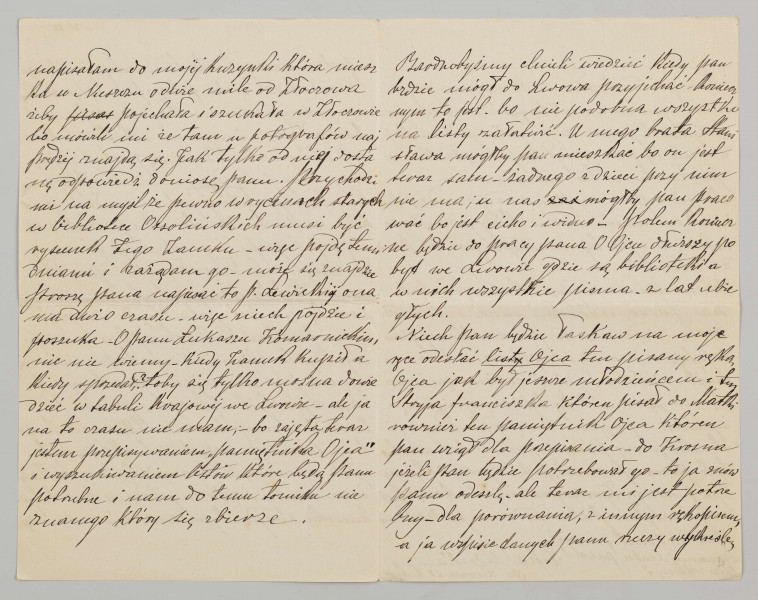 napisałam do mojéj kuzynki która miesz
ka w Meszem odwie mile od Złoczowa
żeby pojechała i szukała w Złoczowie
bo mówili mi że tam u fotografów naj
prędzej znajdą się. Jak tylko od niéj dosta
nę odpowiedź doniosę panu. Przychodzi
mi na myśl że pewno w rycinach starych
w bibliotece Ossolińskich musi być
rysunek tego Zamku – więc pójdę temi
dniami i zażądam go – może się znajdzie
Proszę pana napisać to p. Lewickiéj ona
ma dużo czasu – więc niech pójdzie i
poszuka – O panu Łukaszu Komarnickim,
nic nie wiemy – kiedy Zamek kupił a
kiedy sprzedał? toby się tylko można dowie
dzieć w tabuli krajowéj we Lwowie – ale ja
na to czasu nie mam, – bo zajęta teraz
jestem przepisywaniem „pamiętnika Ojca"
i wyszukiwaniem listów które będą panu
potrzebne i nam do temu tomiku nie
znanego który się zbierze.
Bardzobyśmy chcieli wiedzieć kiedy pan
będzie mógł do Lwowa przyjechać koniecz
nym to jest. bo nie podobna wszystko
na listy załatwić. U mego brata Stani
sława mógłby pan mieszkać bo on jest
teraz sam – żadnego z dzieci przy nim
nie ma, u nas mógłby pan praco
wać bo jest cicho i widno – Potem koniecz
ne będzie do pracy pana O Ojcu dłuższy po
byt we Lwowie gdzie są biblioteki a
w nich wszystkie pisma – z lat ubie
głych.
Niech pan będzie łaskaw na moje
ręce odesłać listy Ojca ten pisany ręką
Ojca jak był jeszcze młodzieńcem i
Stryja Franciszka któren pisał do Matki
również ten pamiętnik Ojca któren
pan wziął dla przepisania – do Krosna
jeżeli pan będzie potrzebował go – to ja znów
panu odeszlę – ale teraz mi jest potrze
bny – dla porównania, z innym rękopisem,
a ja wypis z danych panu rzeczy wykreślę,